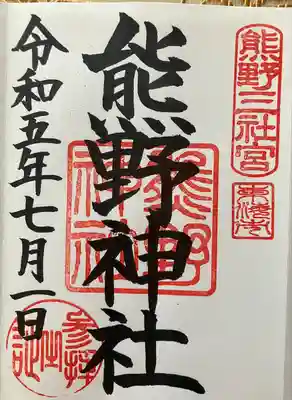 熊野三社宮
東海市
熊野神社
熊野神社
令和五年七月一日
参拝之証